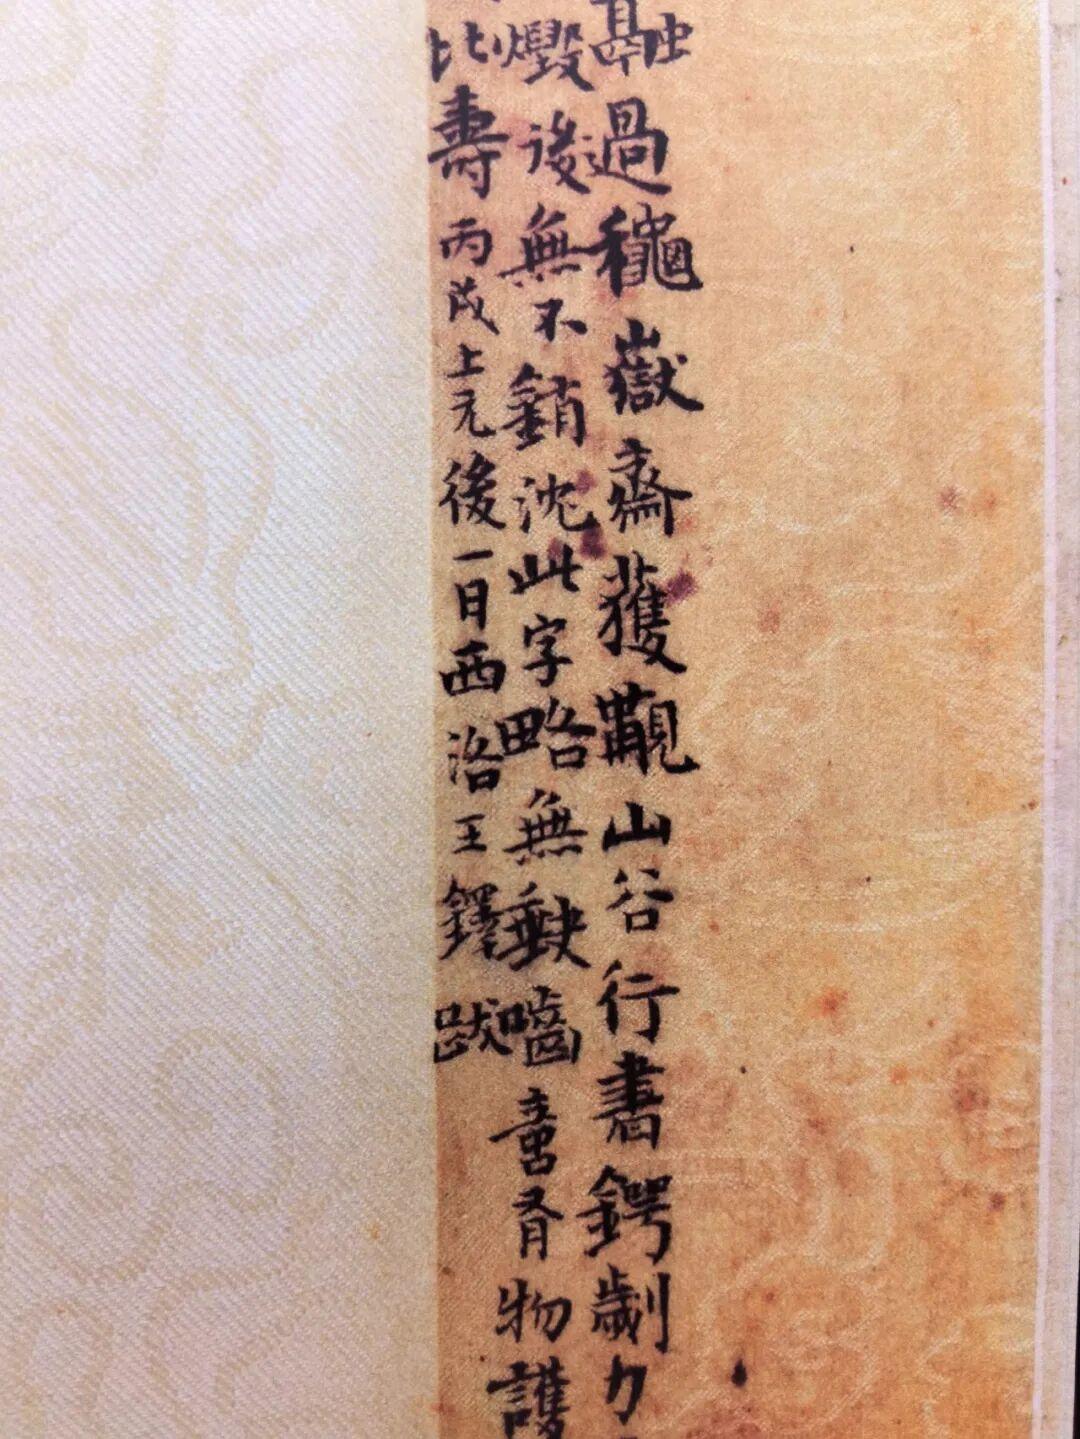 融過龝嶽齋獲觀山谷行書鍔劌力
燬後無不銷沈此字略無缺嚙啻有物護
比壽丙戌上元後一日西洛王鐸跋